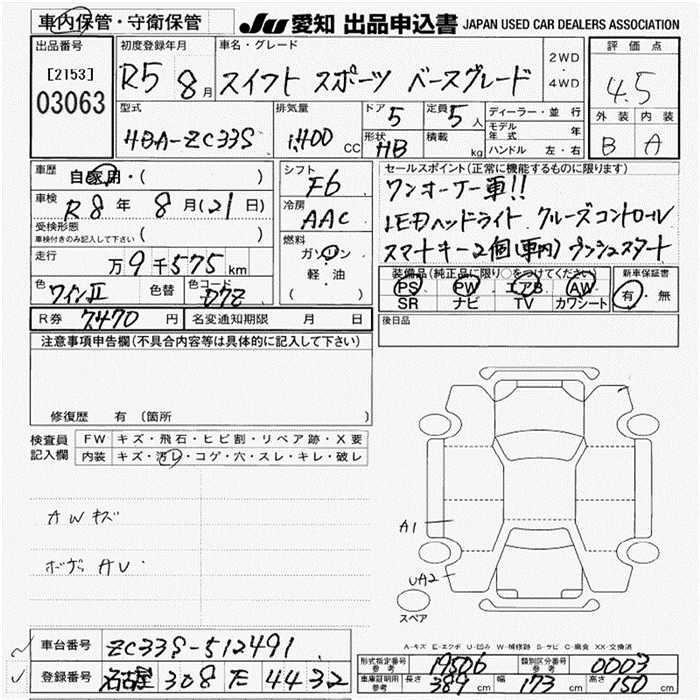 車内保管・守衛保管
JU 愛知 出品申込書 JAPAN USED CAR DEALERS ASSOCIATION
出品番号
[2153]
03063
初度登録年月
R5 8月
車名・グレード
スイフト スポーツ ベースグレード
2WD
・
4WD
評価点
4.5
外装 内装
B A
型式
HBA-ZC33S
排気量
1,400 CC
ドア 5
定員 5人
形状 HB
積載 kg
ディーラー・並行
モデル年式 年
ハンドル 左・右
車歴
自家用・( )
車検
R8年 8月(21日)
受検形態
車検付きのみ記入して下さい ( )
走行
万9千575km
色
ワインⅡ
色替
色コード
シフト
F6
冷房
AAC
燃料
ガソリン
軽・油
( )
セールスポイント(正常に機能するものに限ります)
ワンオーナー車!!
LEDヘッドライト クルーズコントロール
スマートキー2個(車内) プッシュスタート
装備品(純正品に限り○をつけてください)
PS PW エアB AW
SR ナビ TV カワシート
新車保証書
有・無
R券 7470円
名変通知期限 月 日
後日品
注意事項申告欄(不具合内容等は具体的に記入して下さい)
修復歴 有(箇所 )
検査員記入欄
FW キズ・飛石・ヒビ割・リペア跡・X要
内装 キズ・汚レ・コゲ・穴・スレ・キレ・破レ
AWキズ
AU
A1
UA2
スペア
A-キズ E-エクボ U-凹み W-補修跡 S-サビ C-腐食 XX-交換済
車台番号 ZC33S-512491
登録番号 名古屋 308 モ 4432
形式指定番号 参考 19506
類別区分番号 参考 0003
車庫証明用 参考 長さ 389cm 幅 173cm 高さ 150cm